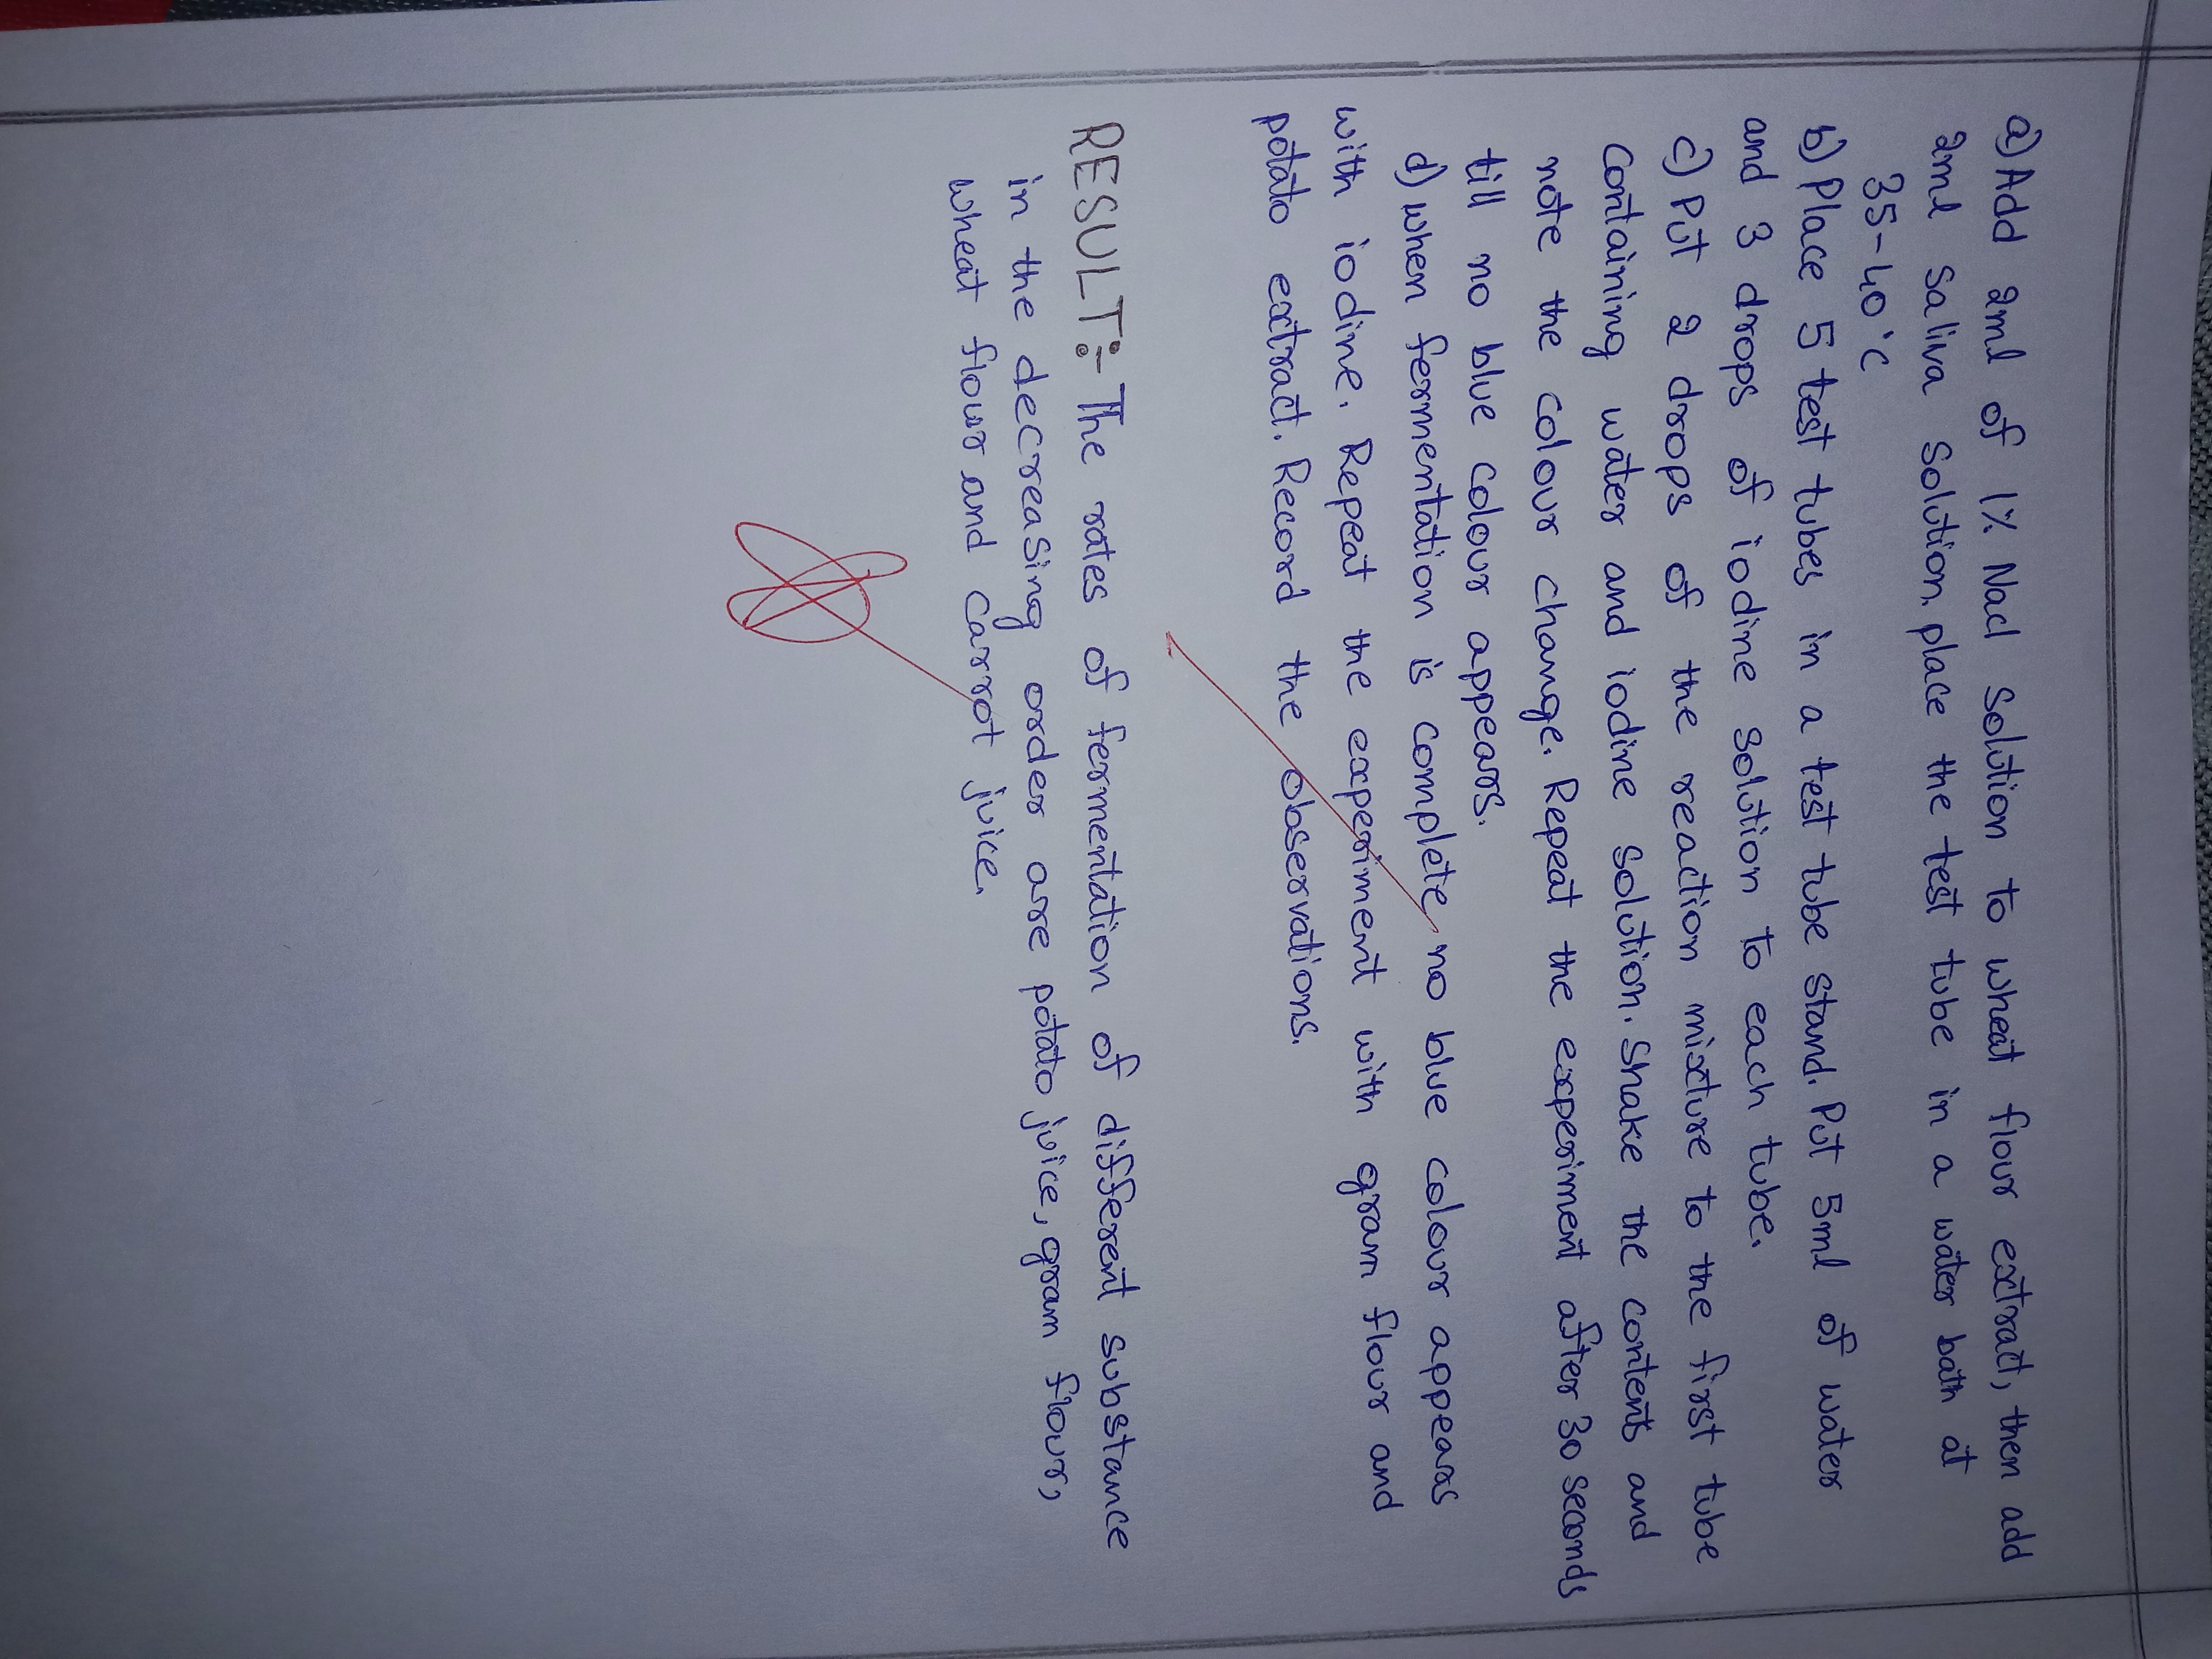 a) Add 2ml of 1% Nacl Solution to wheat flour extract, then add
2ml Saliva Solution. place the test tube in a water bath at
35-40°C
b) Place 5 test tubes in a test tube stand. Put 5ml of water
and 3 drops of iodine Solution to each tube.
c) Put 2 drops of the reaction mixture to the first tube
Containing water and iodine Solution. Shake the contents and
note the colour change. Repeat the experiment after 30 seconds
till no blue colour appears.
d) when fermentation is complete no blue colour appears
with iodine. Repeat the experiment with gram flour and
potato extract. Record the observations.
RESULT:- The rates of fermentation of different substance
in the decreasing order are potato juice, gram flour,
wheat flour and carrot juice.